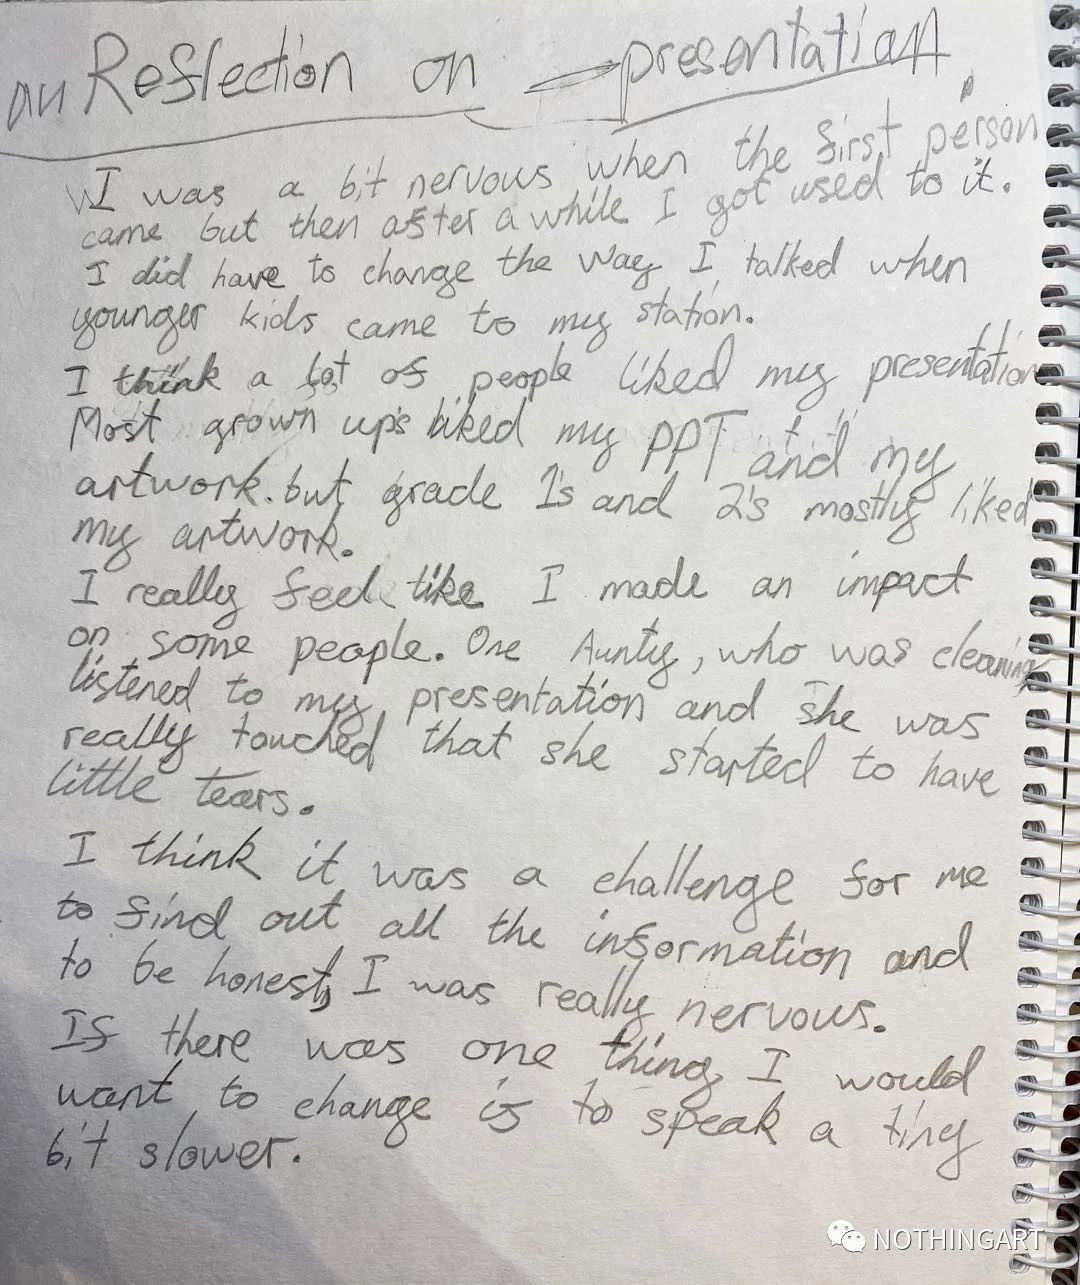 an Reflection on presentation.
I was a bit nervous when the first person
came but then after a while I got used to it.
I did have to change the way I talked when
younger kids came to my station.
I think a lot of people liked my presentation
Most grown up's liked my PPT and my
artwork. but grade 1's and 2's mostly liked
my artwork.
I really feel like I made an impact
on some people. One Aunty, who was cleaning
listened to my presentation and she was
really touched that she started to have
little tears.
I think it was a challenge for me
to find out all the information and
to be honest, I was really nervous.
If there was one thing I would
want to change is to speak a tiny
bit slower.
NOTHINGART